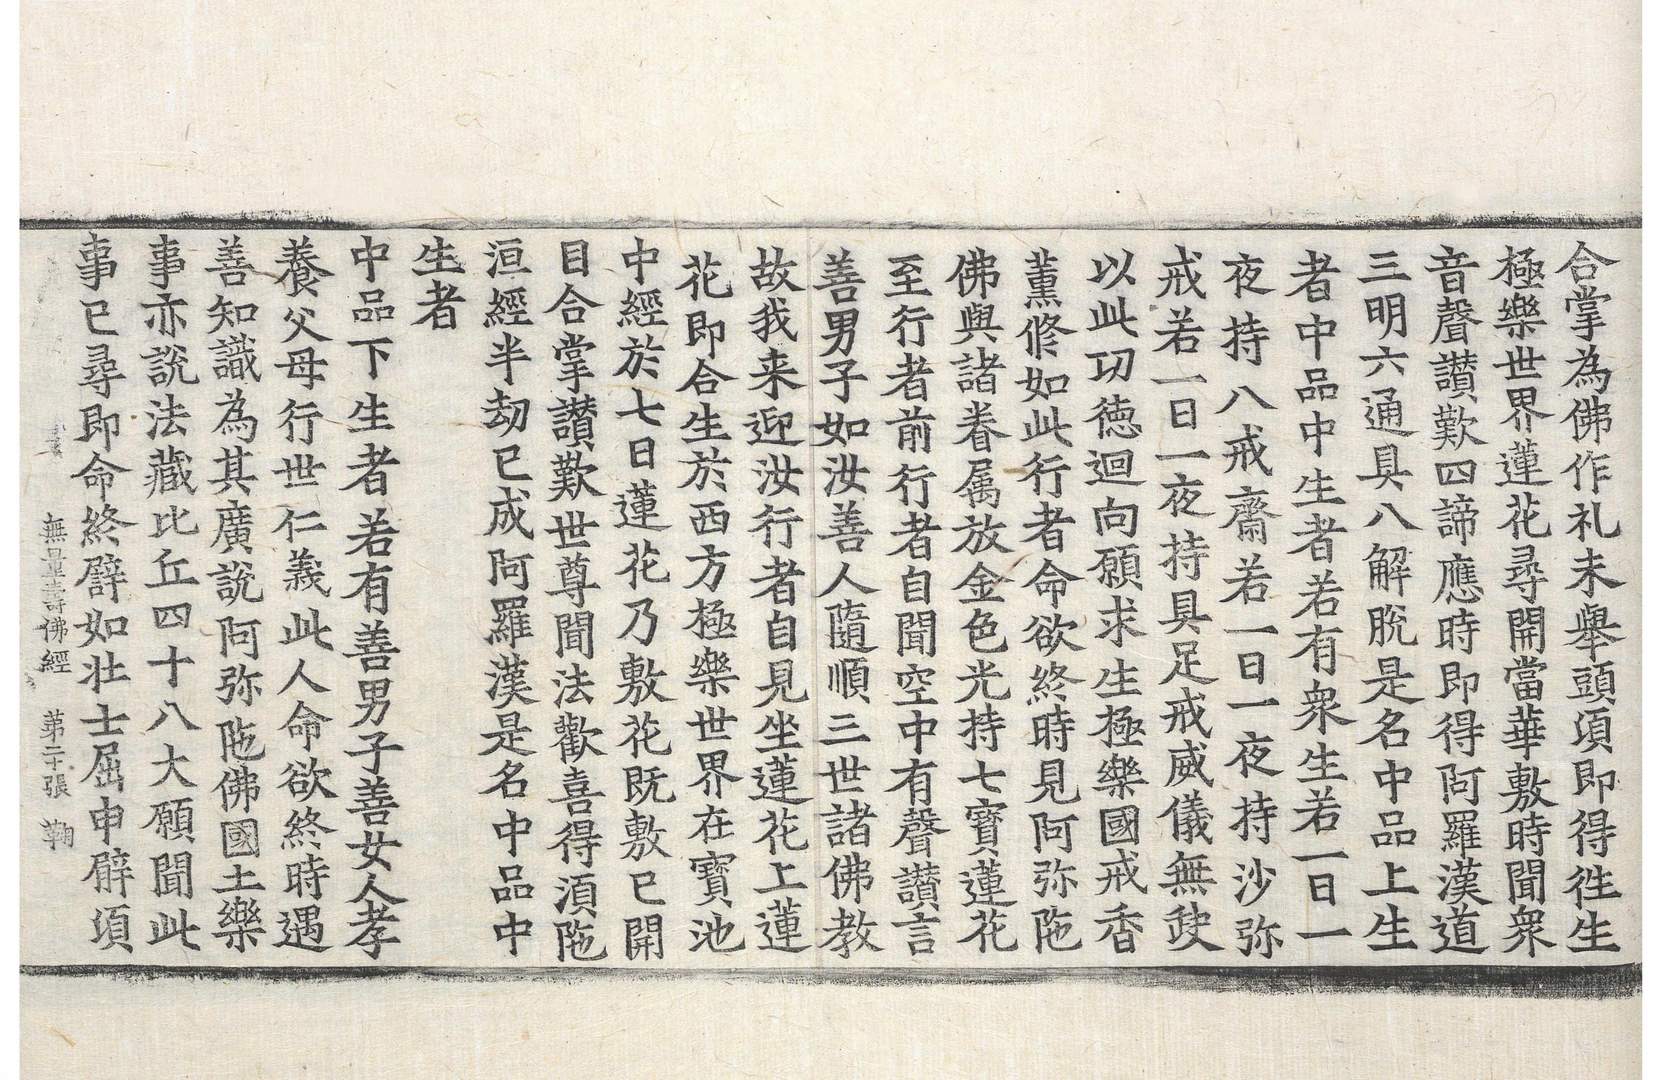 合掌為佛作礼未舉頭項即得徃生
極樂世界蓮花尋開當華敷時聞衆
音聲讃歎四諦應時即得阿羅漢道
三明六通具八解脫是名中品上生
者中品中生者若有衆生若一日一
夜持八戒齋若一日一夜持沙弥
戒若一日一夜持具足戒威儀無𡙇
以此功德迴向願求生極樂國戒香
薰修如此行者命欲終時見阿弥陁
佛與諸眷属放金色光持七寳蓮花
至行者前行者自聞空中有聲讃言
善男子如汝善人隨順三世諸佛教
故我来迎汝行者自見坐蓮花上蓮
花即合生於西方極樂世界在寳池
中經於七日蓮花乃敷花既敷已開
目合掌讃歎世尊聞法歡喜得湏陁
洹經半劫已成阿羅漢是名中品中
生者
中品下生者若有善男子善女人孝
養父母行世仁義此人命欲終時遇
善知識為其廣說阿弥陁佛國土樂
事亦說法藏比丘四十八大願聞此
事已尋即命終辟如壮士屈申臂項
無量壽佛經 第二十張 鞠